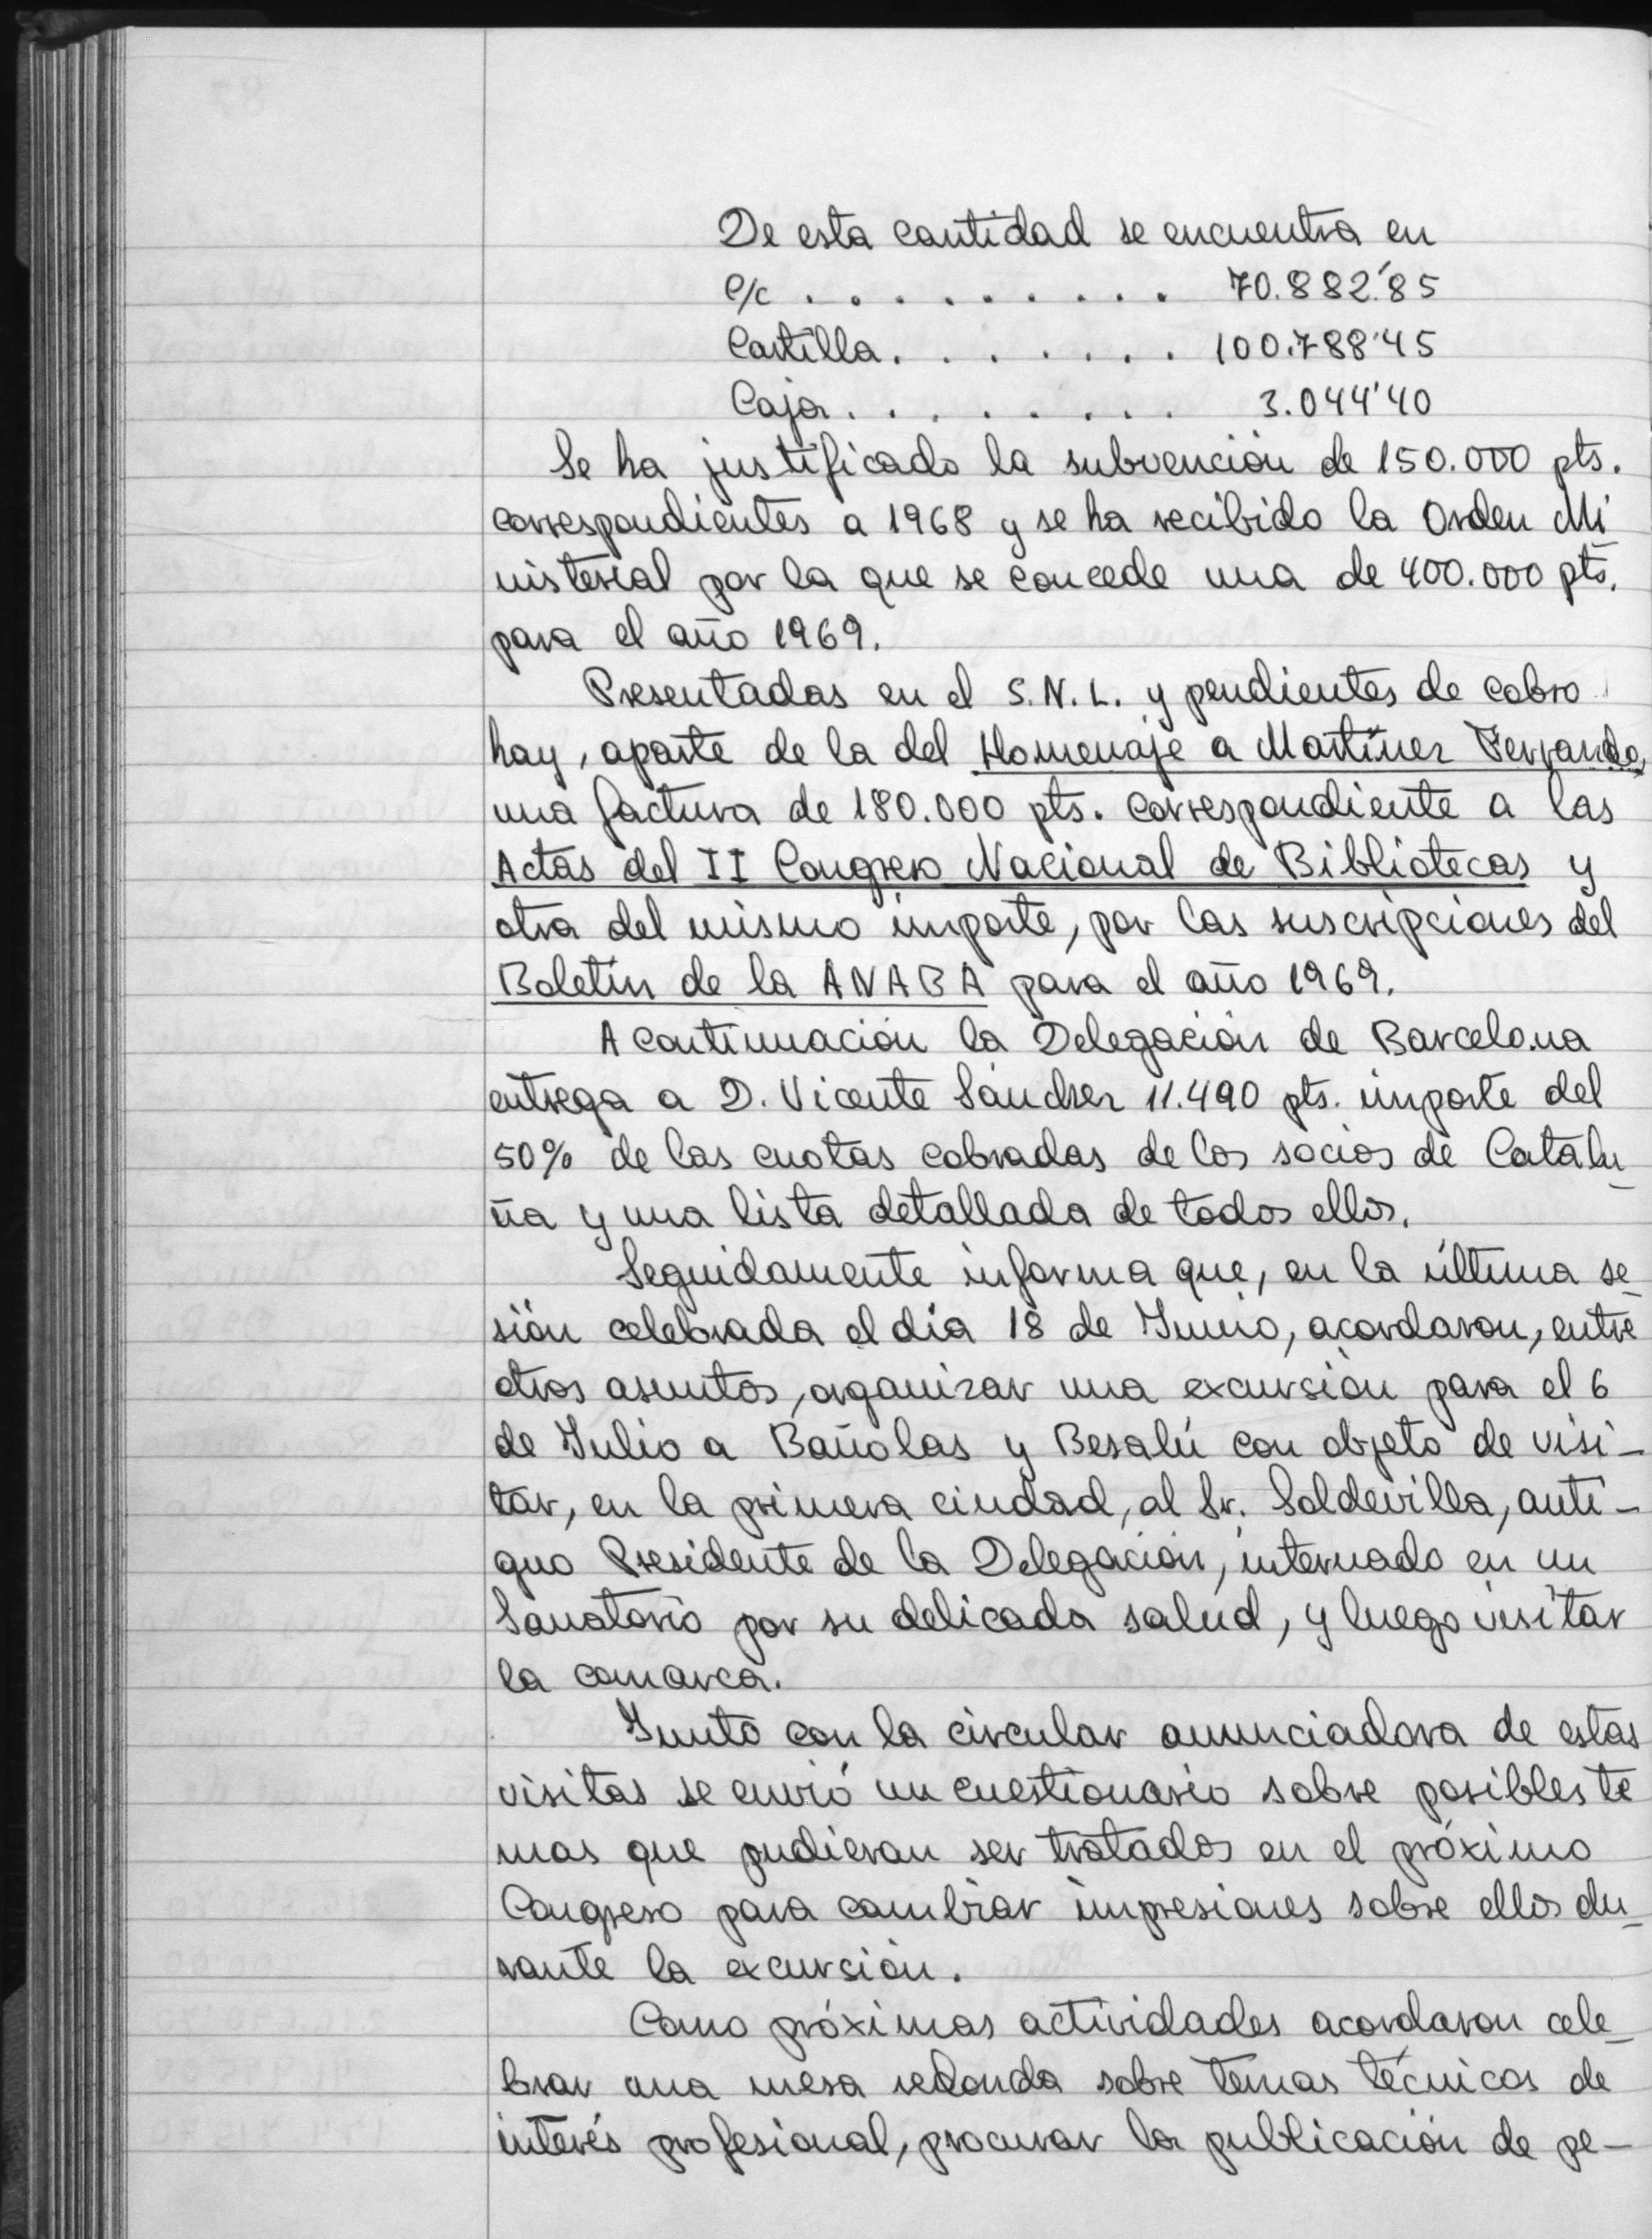 De esta cantidad se encuentra en
c/c . . . . . . . . . 70.882'85
Cartilla . . . . . . . 100.788'45
Caja . . . . . . . . 3.044'40
Se ha justificado la subvención de 150.000 pts.
correspondientes a 1968 y se ha recibido la Orden Mi
nisterial por la que se concede una de 400.000 pts.
para el año 1969.
Presentadas en el S.N.L. y pendientes de cobro
hay, aparte de la del Homenaje a Martínez Ferrando,
una factura de 180.000 pts. correspondiente a las
Actas del II Congreso Nacional de Bibliotecas y
otra del mismo importe, por las suscripciones del
Boletín de la ANABA para el año 1969.
A continuación la Delegación de Barcelona
entrega a D. Vicente Sánchez 11.490 pts. importe del
50% de las cuotas cobradas de los socios de Catalu_
ña y una lista detallada de todos ellos.
Seguidamente informa que, en la última se_
sión celebrada el día 18 de Junio, acordaron, entre
otros asuntos, organizar una excursión para el 6
de Julio a Bañolas y Besalú con objeto de visi-
tar, en la primera ciudad, al Sr. Soldevilla, anti-
guo Presidente de la Delegación, internado en un
Sanatorio por su delicada salud, y luego visitar
la comarca.
Junto con la circular anunciadora de estas
visitas se envió un cuestionario sobre posibles te
mas que pudieran ser tratados en el próximo
Congreso para cambiar impresiones sobre ellos du_
rante la excursión.
Como próximas actividades acordaron cele_
brar una mesa redonda sobre temas técnicos de
interés profesional, procurar la publicación de pe-